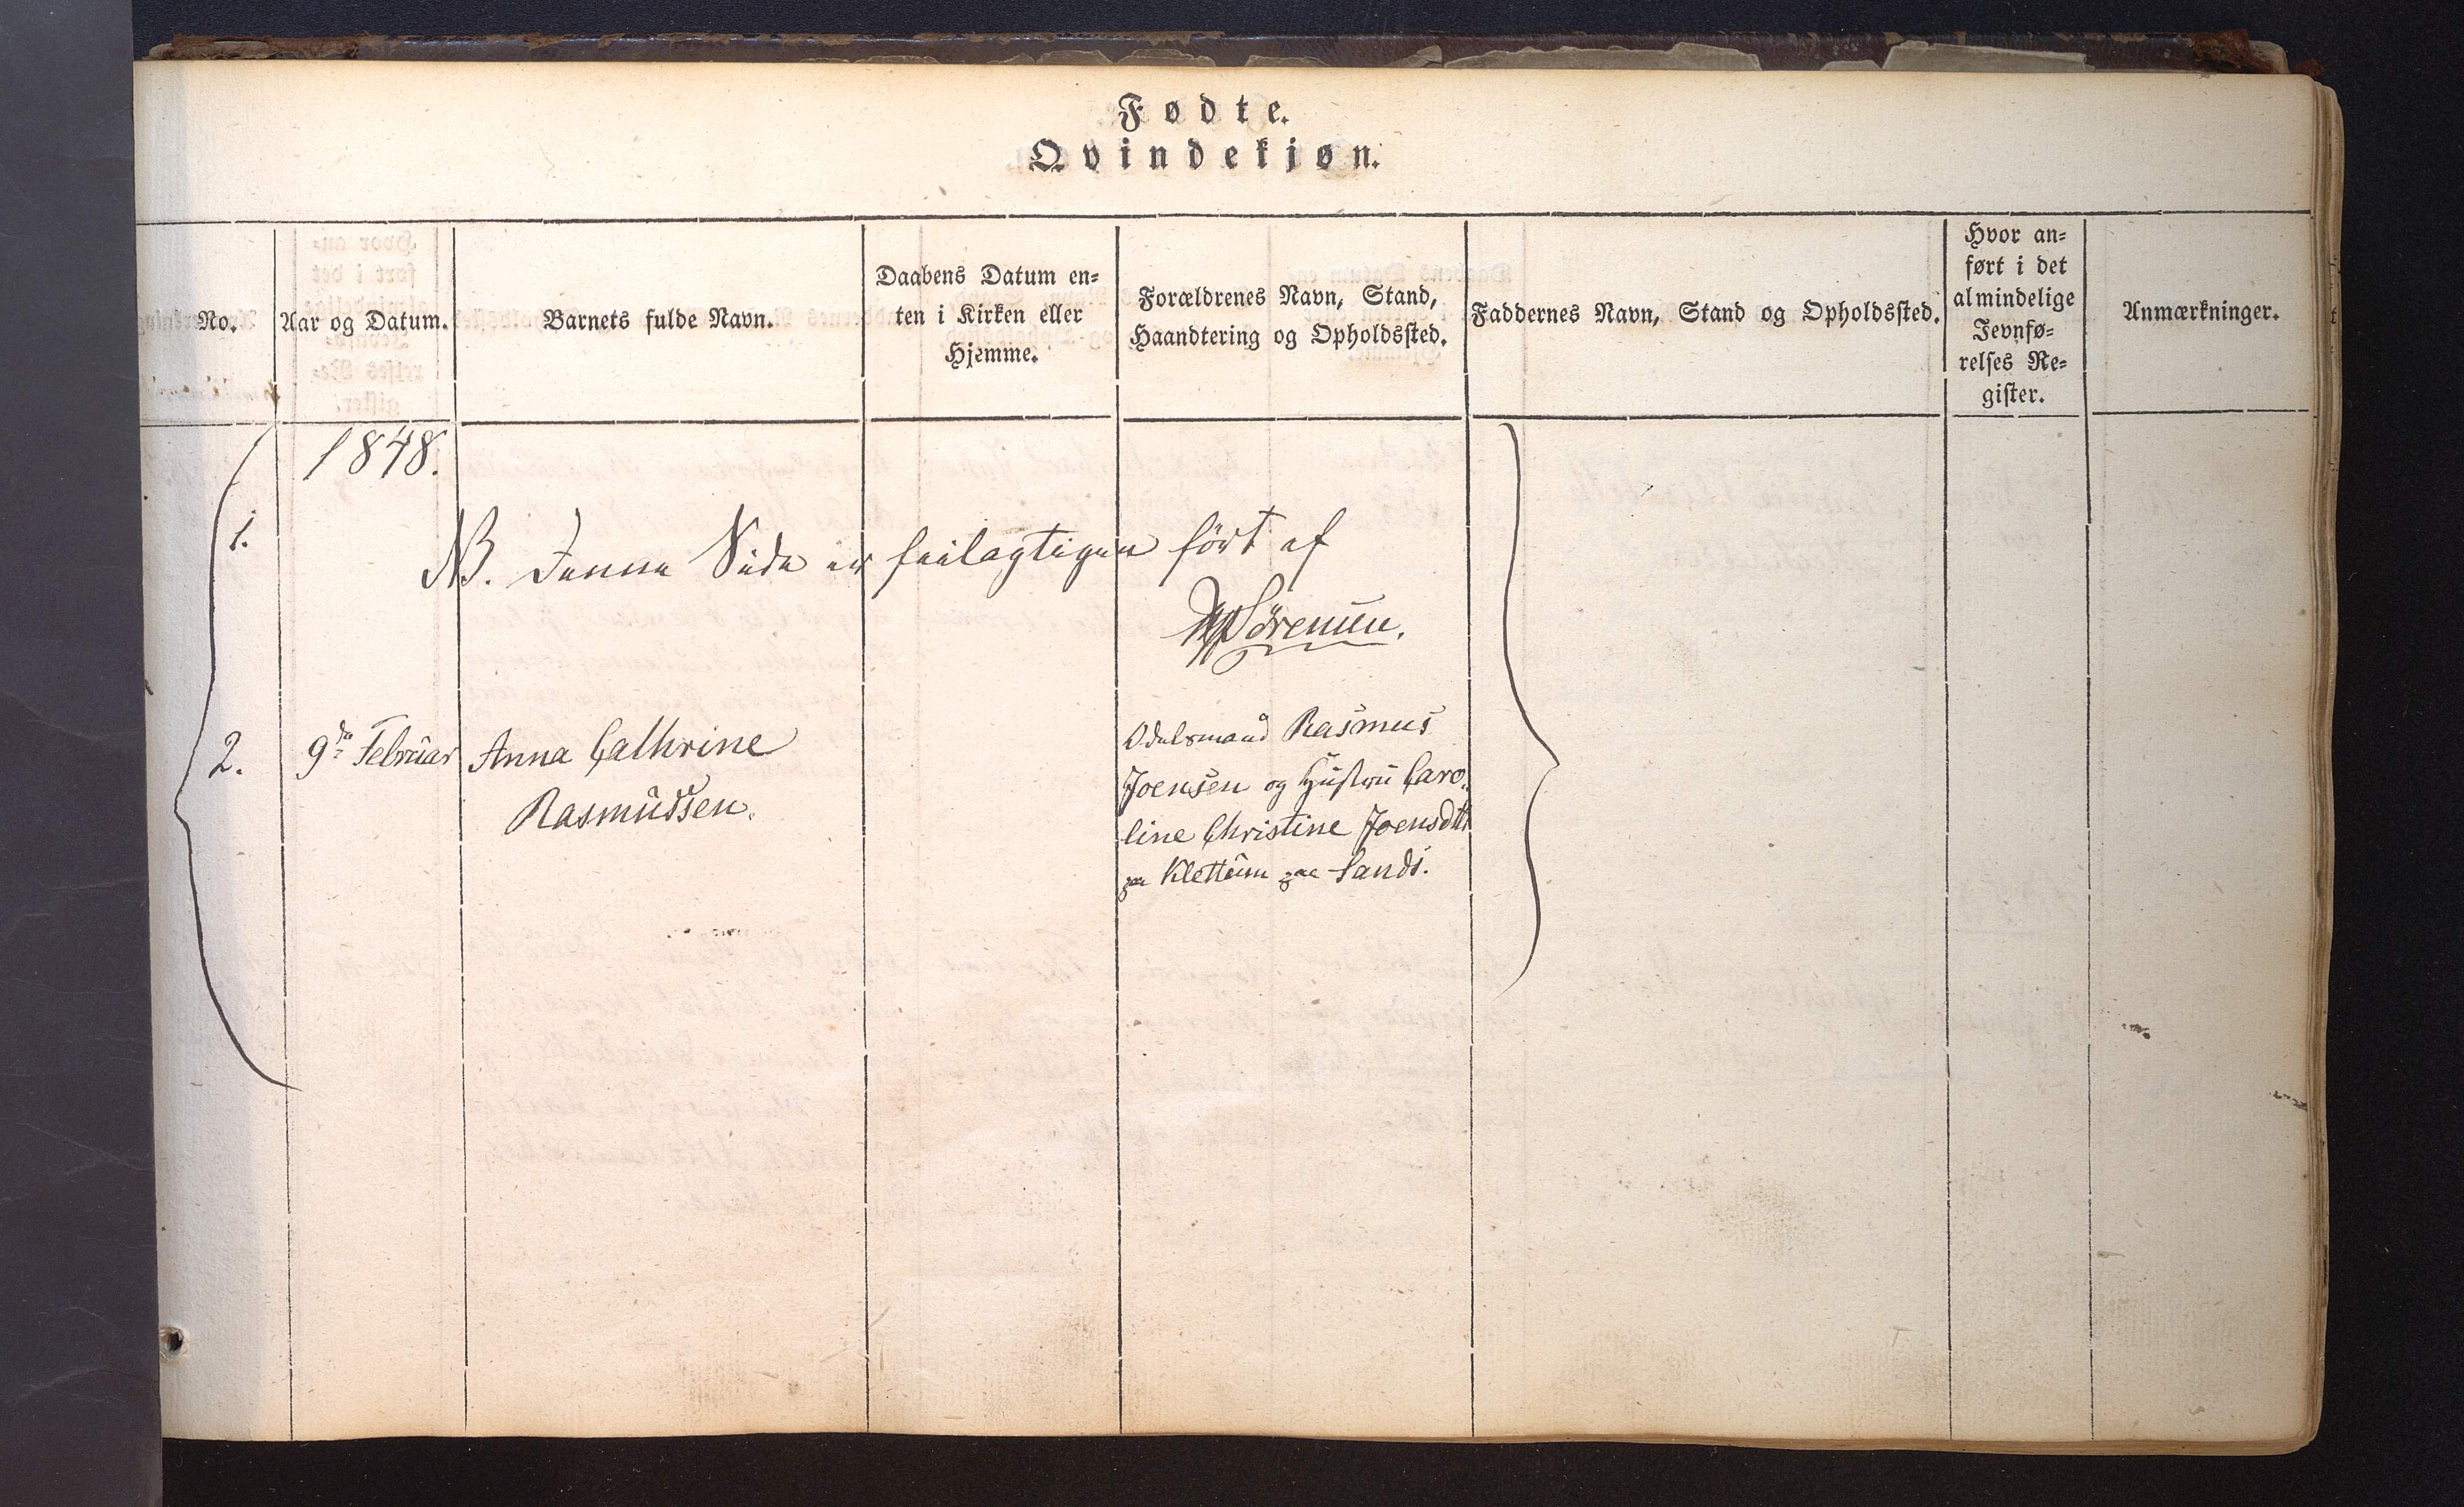 Fødte.
Qvindekjøn.
No.
Aar og Datum.
Barnets fulde Navn.
Daabens Datum en=
ten i Kirken eller
Hjemme.
Forældrenes Navn, Stand,
Haandtering og Opholdssted.
Faddernes Navn, Stand og Opholdssted.
Hvor an=
ført i det
almindelige
Jevnfø=
relses Re=
gister.
Anmærkninger.
1848.
1.
NB. Denne Side er feilagtigen ført af
Sørensen.
2.
9de Februar
Anna Cathrine
Rasmussen.
Odelsmand Rasmus
Joensen og Hustru Caro-
line Christine Joensdtt
paa Klettum paa Sand.